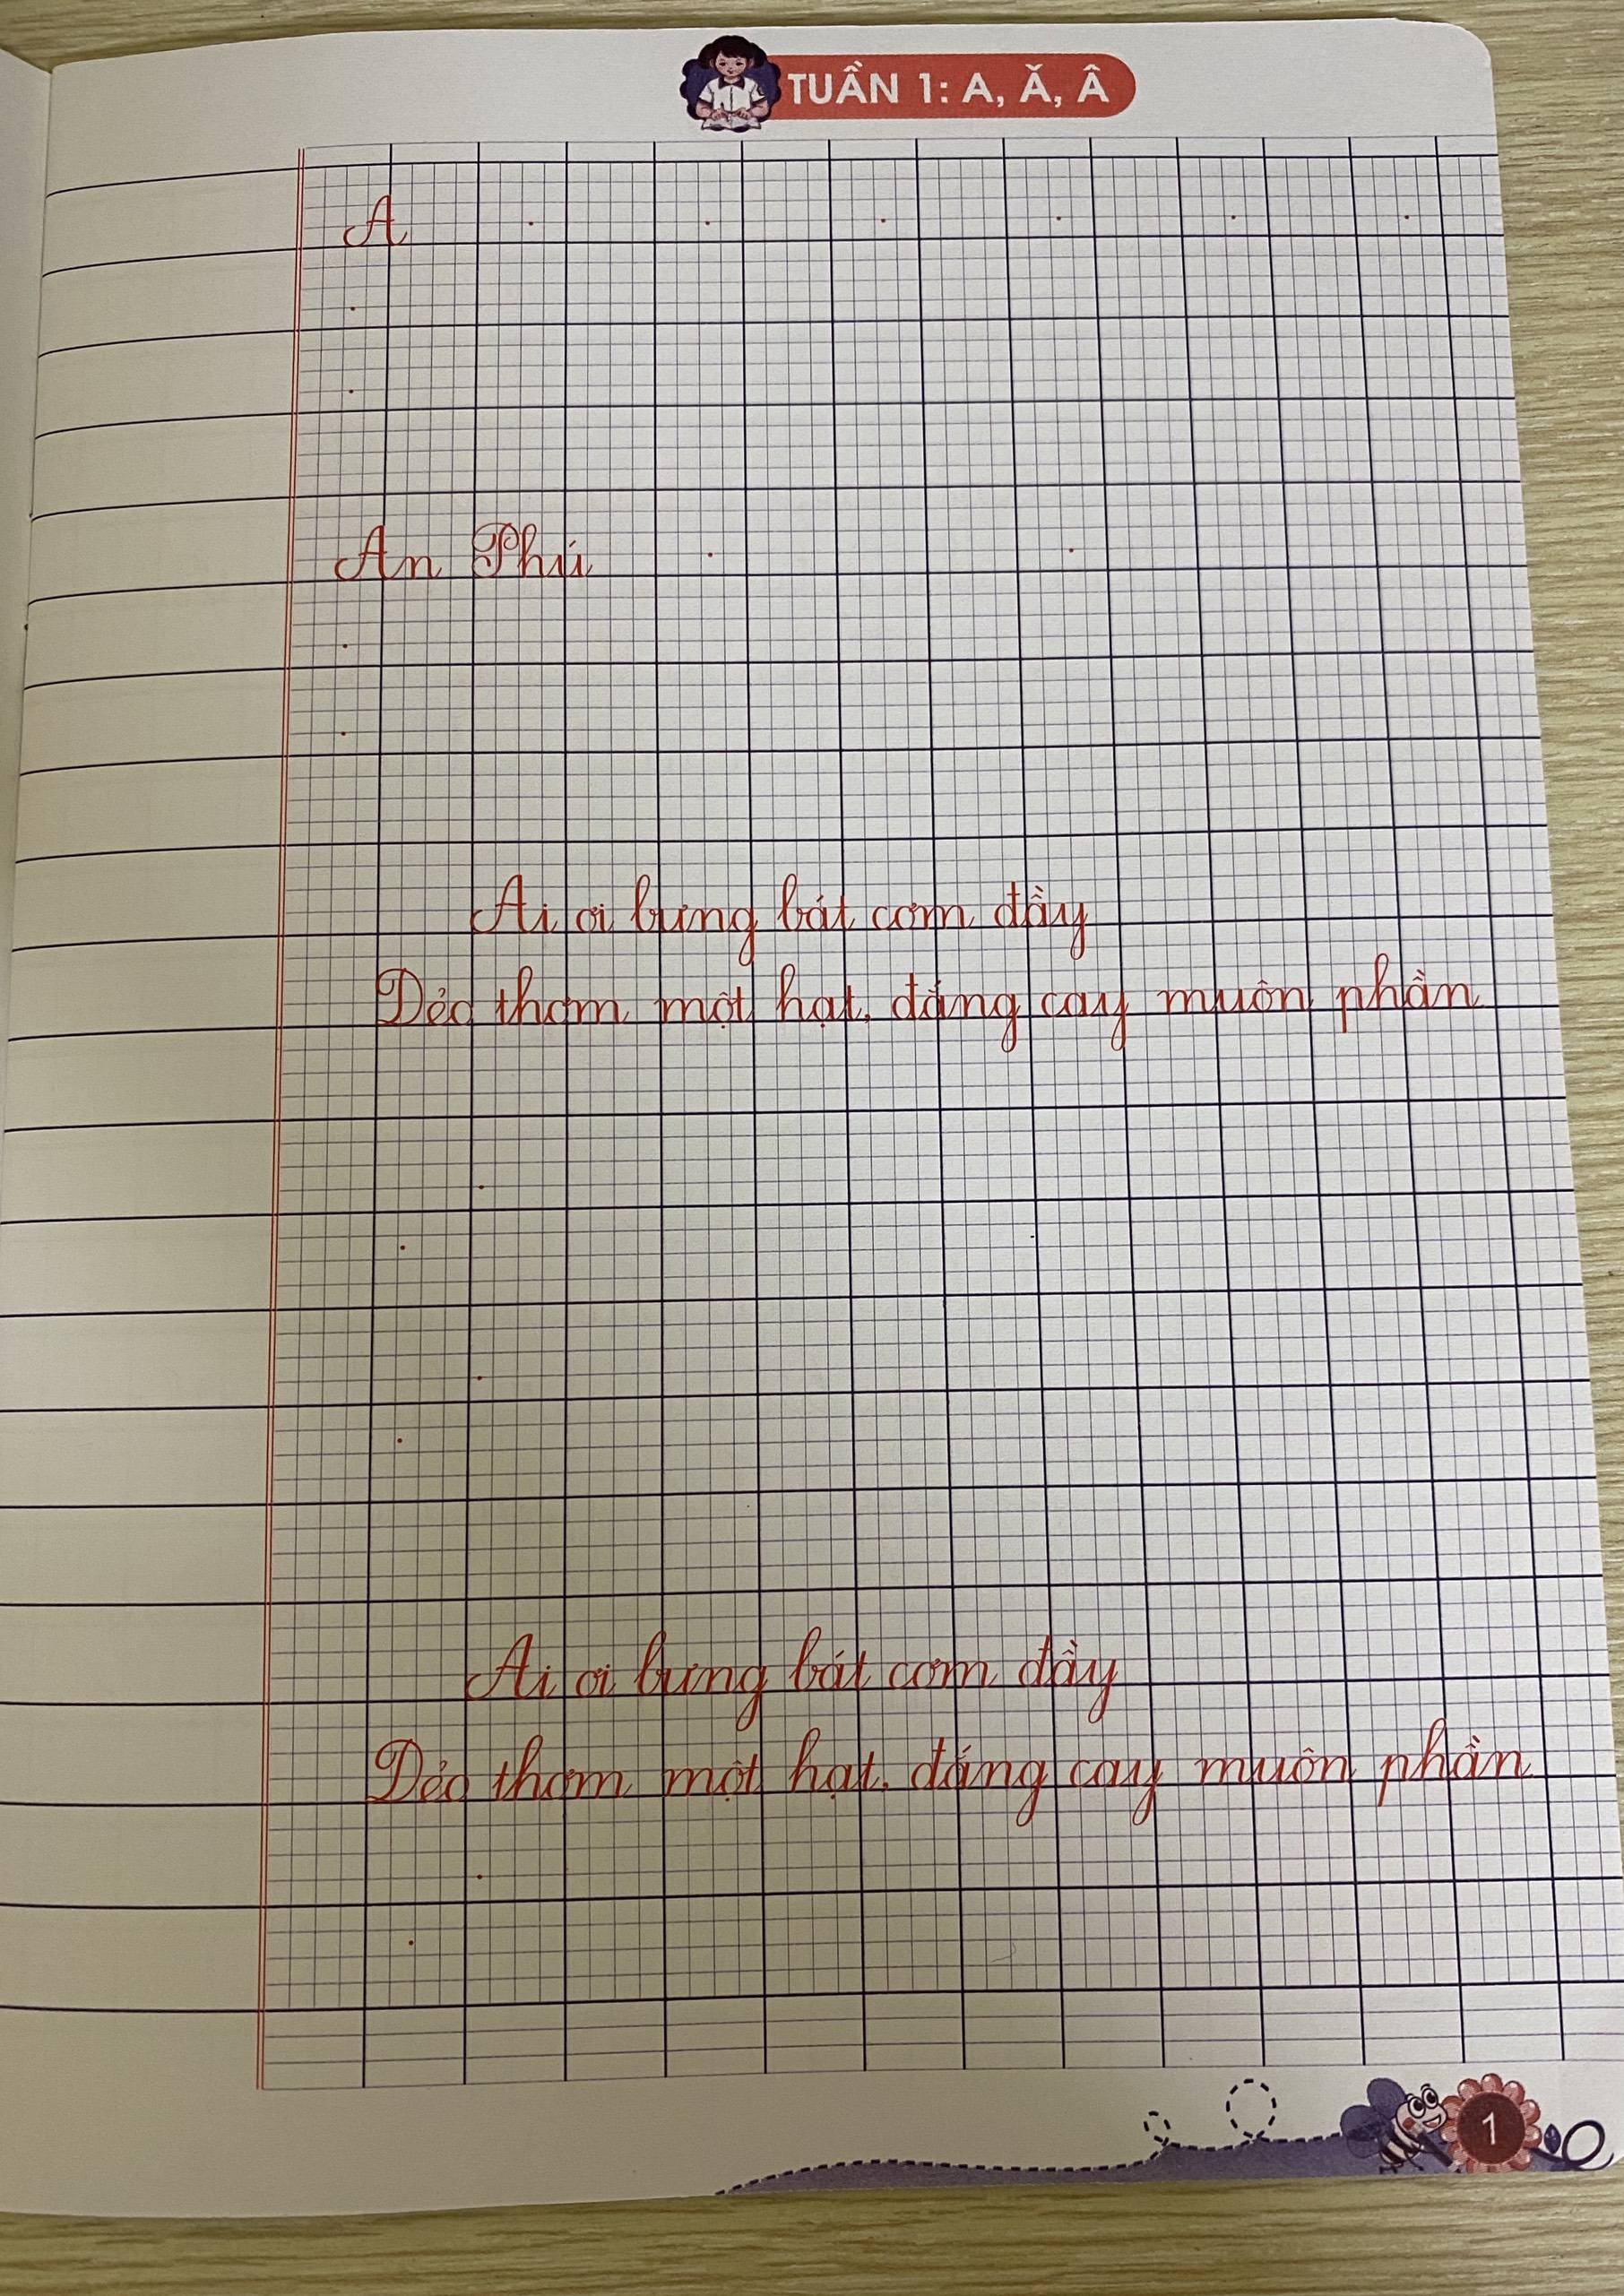 TUẦN 1: A, Ă, Â
A
An Phú
Ai ơi bưng bát cơm đầy
Dẻo thơm một hạt, đắng cay muôn phần
Ai ơi bưng bát cơm đầy
Dẻo thơm một hạt, đắng cay muôn phần
1